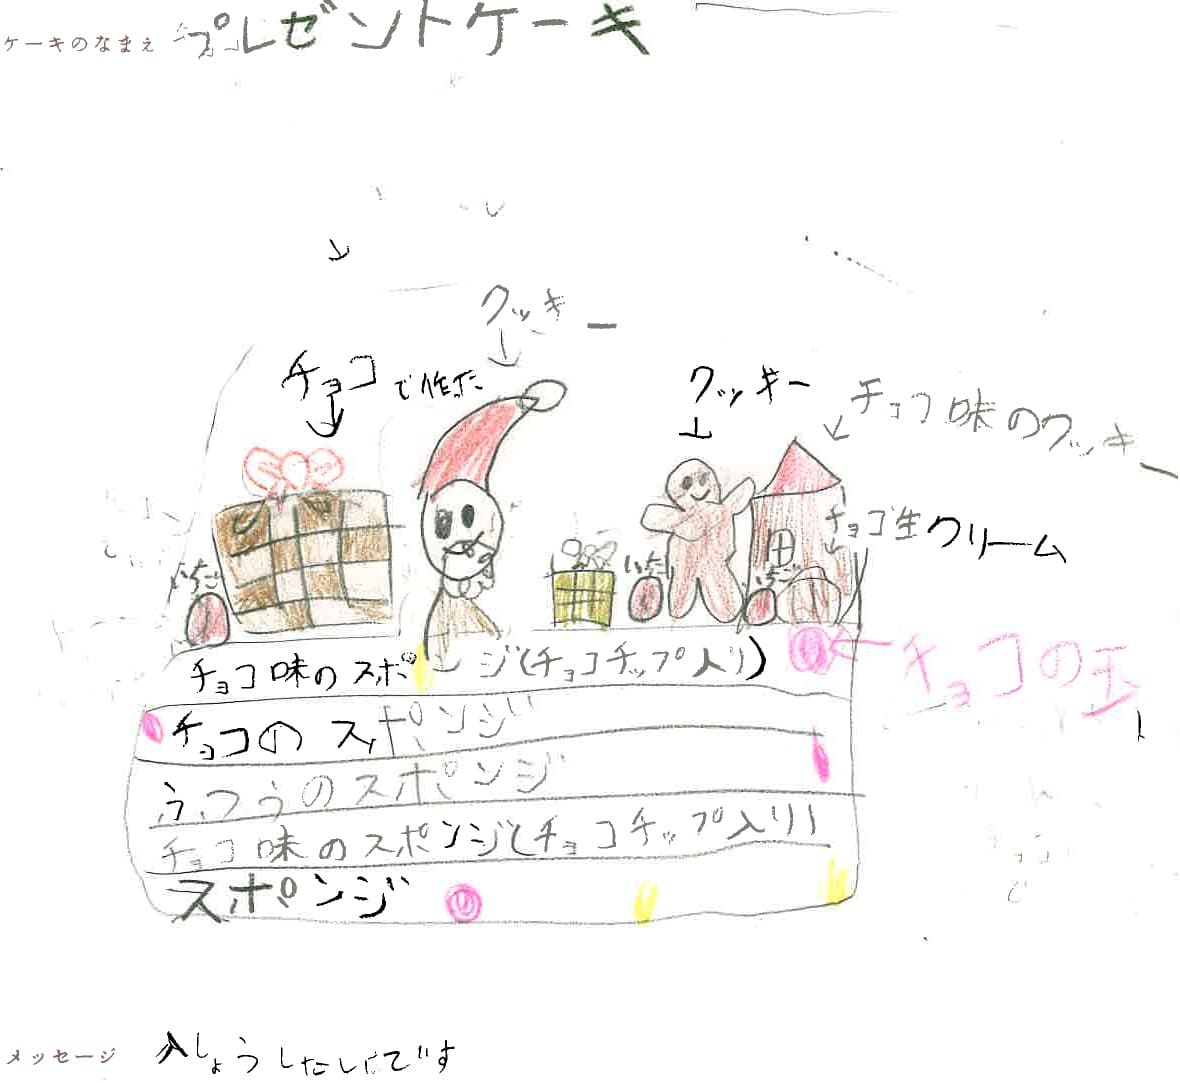 ケーキのなまえ プレゼントケーキ
クッキー
チョコで作た
クッキー
チョコ味のクッキー
チョコ生クリーム
いちご
いちご
いちご
チョコ味のスポンジ(チョコチップ入り)
チョコの玉
チョコのスポンジ
ふつうのスポンジ
チョコ味のスポンジ(チョコチップ入り)
スポンジ
メッセージ 入しょうしたいです